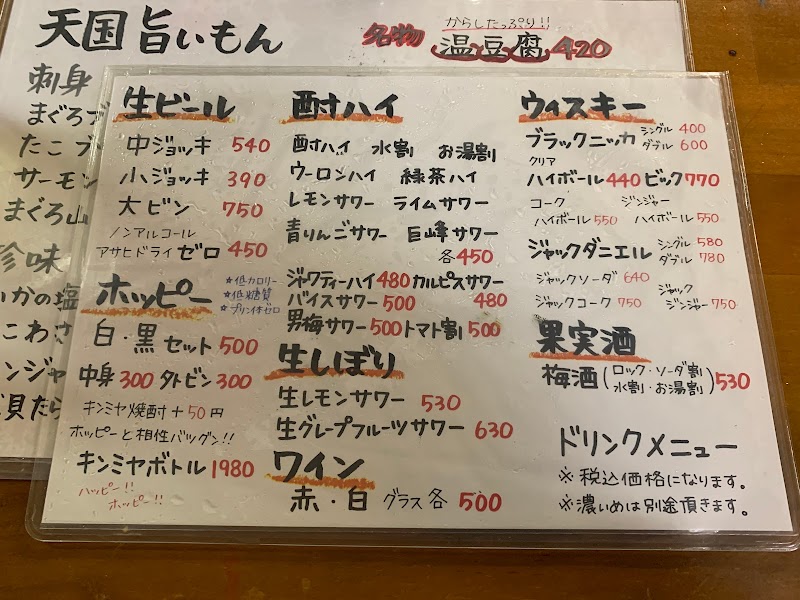 天国 旨いもん
からしたっぷり!!
名物 温豆腐 420
刺身
まぐろ
たこブ
サーモン
まぐろ山
珍味
いかの塩
こわさ
ンジャ
貝たら
生ビール
中ジョッキ 540
小ジョッキ 390
大ビン 750
ノンアルコール
アサヒドライゼロ 450
ホッピー
★低カロリー
★低糖質
★プリン体ゼロ
白・黒 セット 500
中身 300 外ビン 300
キンミヤ焼酎 + 50円
ホッピーと相性バツグン!!
キンミヤボトル 1980
ハッピー!!
ホッピー!!
酎ハイ
酎ハイ 水割 お湯割
ウーロンハイ 緑茶ハイ
レモンサワー ライムサワー
青りんごサワー 巨峰サワー
各450
ジャワティーハイ 480 カルピスサワー 480
バイスサワー 500
男梅サワー 500 トマト割 500
生しぼり
生レモンサワー 530
生グレープフルーツサワー 630
ワイン
赤・白 グラス 各 500
ウィスキー
ブラックニッカ シングル 400
クリア ダブル 600
ハイボール 440 ビック 770
コーク ハイボール 550
ジンジャー ハイボール 550
ジャックダニエル シングル 580
ダブル 780
ジャックソーダ 640
ジャックコーク 750
ジャック ジンジャー 750
果実酒
梅酒(ロック・ソーダ割 水割・お湯割) 530
ドリンクメニュー
※税込価格になります。
※濃いめは別途頂きます。